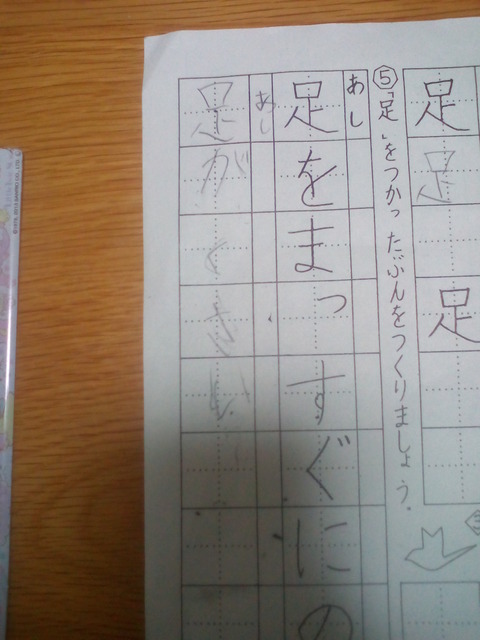 足
足
足
⑤「足」をつかったぶんをつくりましょう。
あし
足をまっすぐにの
あし
足がくさい